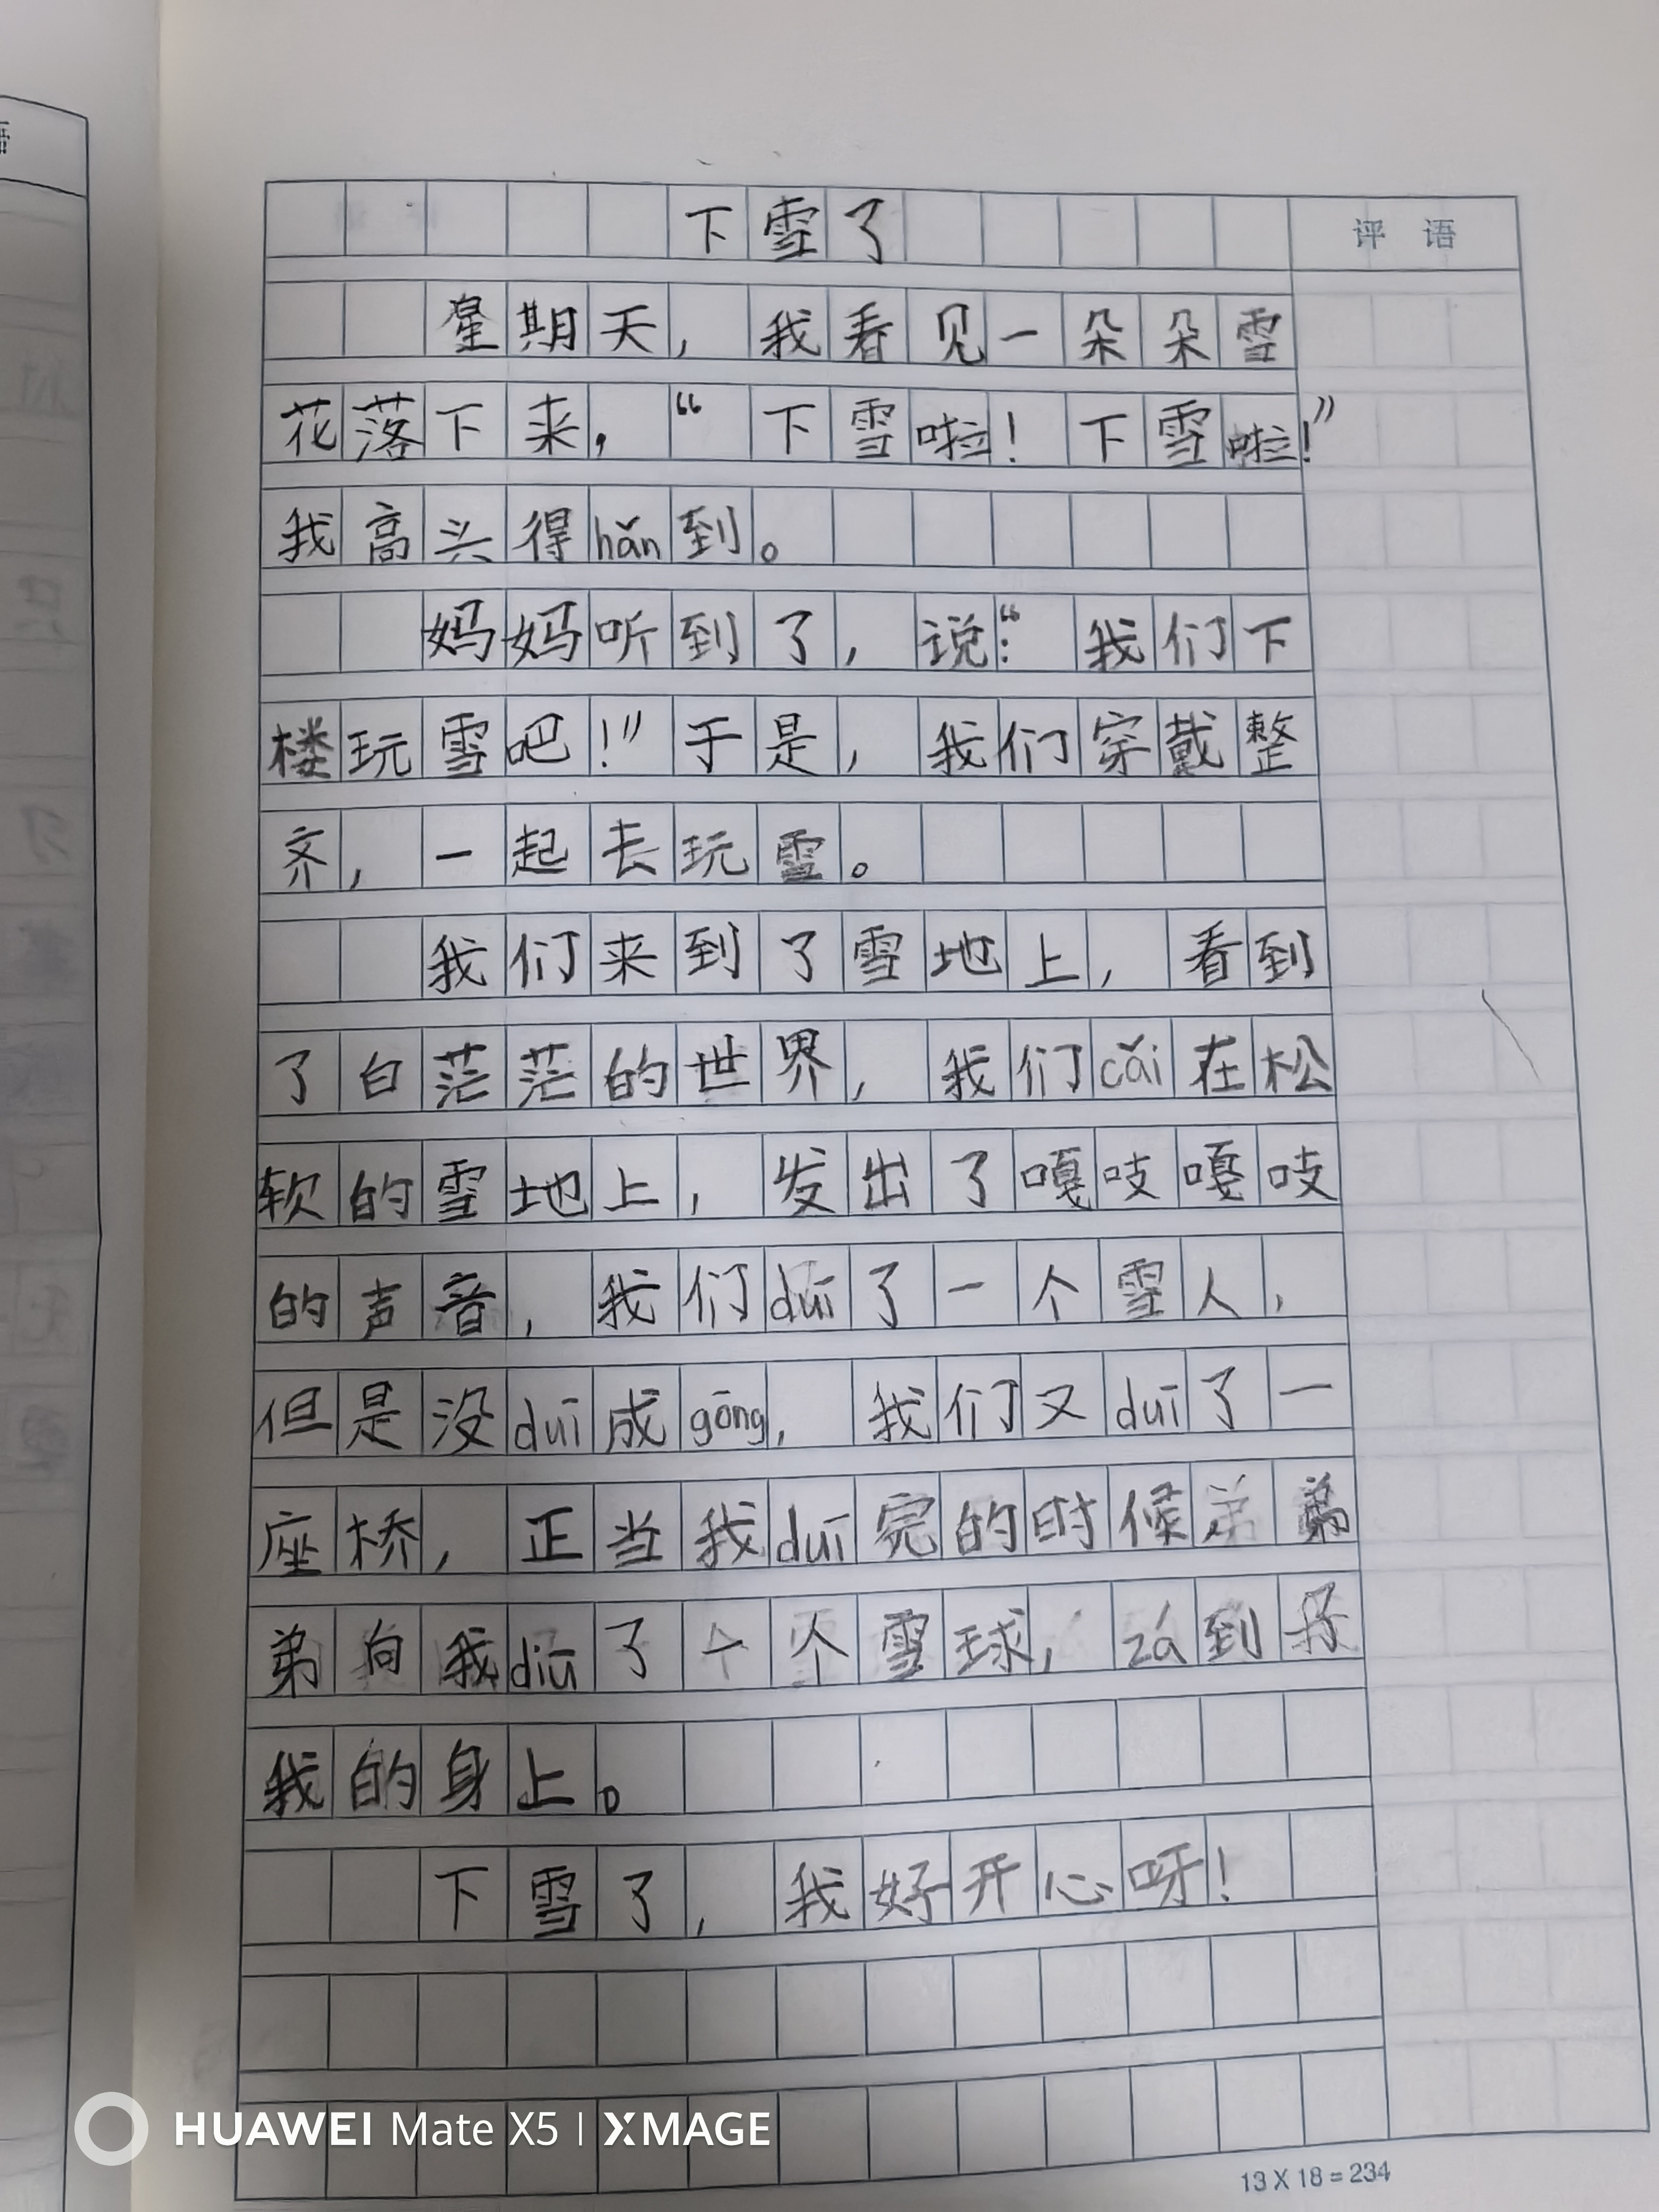 下雪了
评 语
星期天，我看见一朵朵雪
花落下来，“下雪啦！下雪啦！”
我高兴得hǎn到。
妈妈听到了，说：“我们下
楼玩雪吧！”于是，我们穿戴整
齐，一起去玩雪。
我们来到了雪地上，看到
了白茫茫的世界，我们cǎi在松
软的雪地上，发出了嘎吱嘎吱
的声音，我们duī了一个雪人，
但是没duī成gōng，我们又duī了一
座桥，正当我duī完的时候弟弟
弟向我diū了一个雪球，zá到
我的身上。
下雪了，我好开心呀！
HUAWEI Mate X5 | XMAGE
13 X 18 = 234